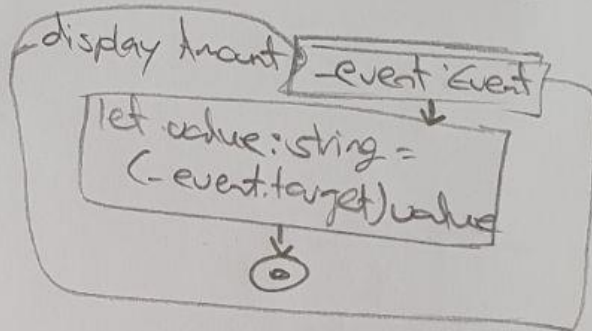 display Amount
_event: Event
let value: string =
(_event.target) value